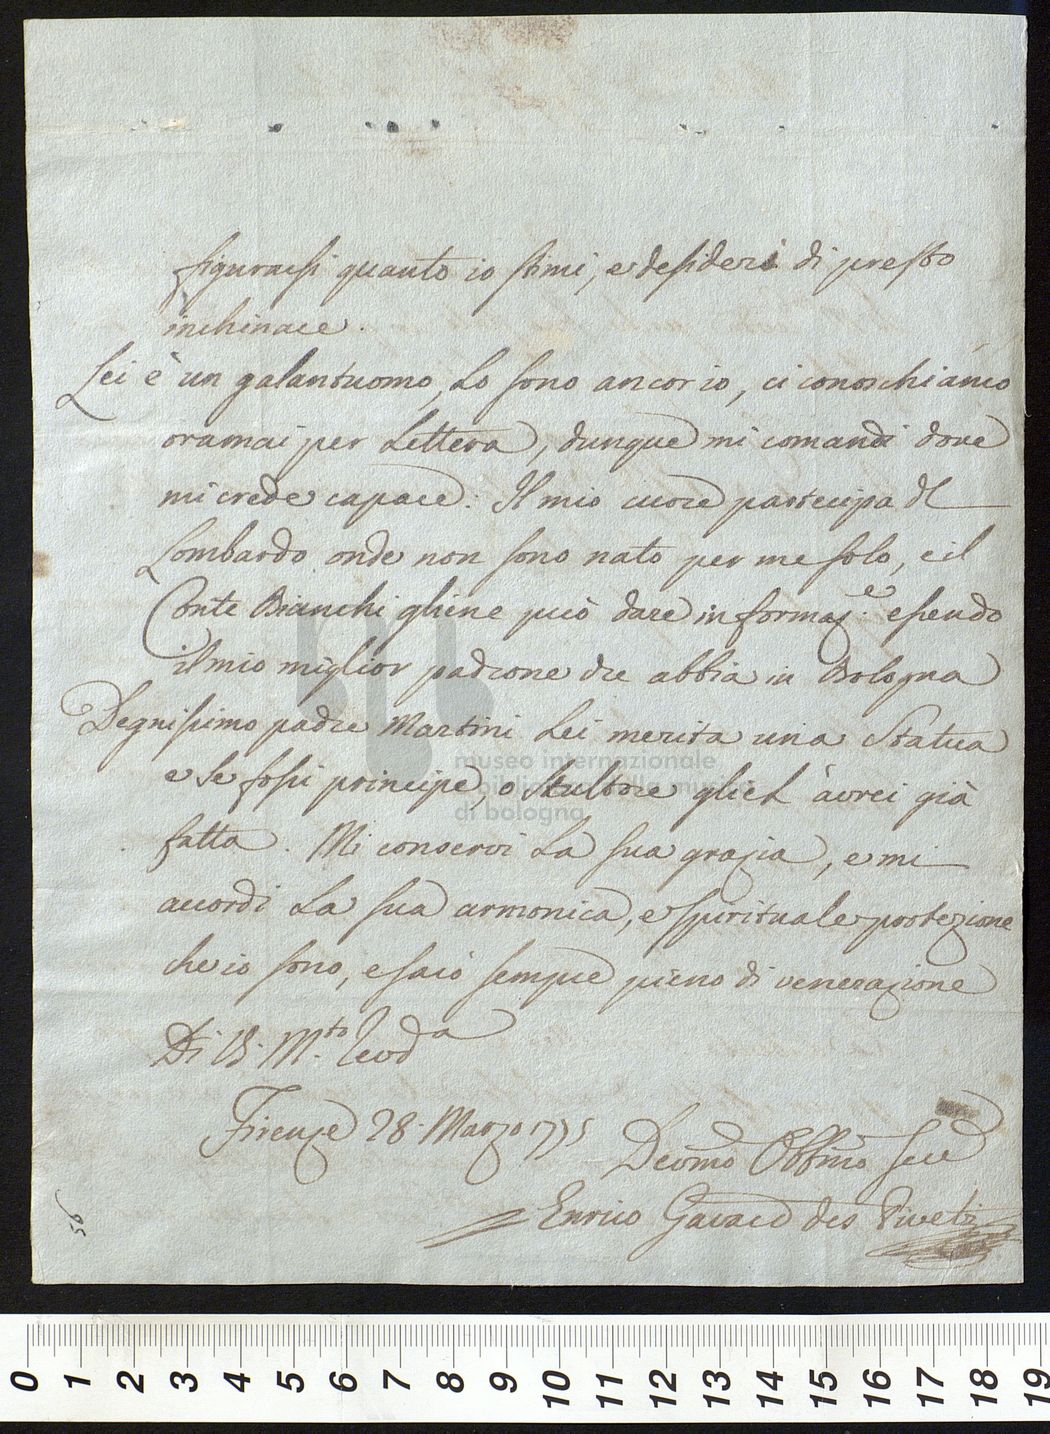 figurarsi quanto io stimi, e desideri di presto
inchinare.
Lei è un galantuomo, Lo sono ancor io, ci conoschiamo
oramai per Lettera, dunque mi comandi dove
mi crede capace: Il mio cuore partecipa del
Lombardo onde non sono nato per me solo, e il
Conte Bianchi gliene può dare informaz.e essendo
il mio miglior padrone che abbia in Bologna
Degnissimo padre Martini Lei merita una Statua
e se fossi principe, o Scultore gliel' avrei già
fatta. Mi conservi La sua grazia, e mi
accordi La sua armonica, e spirituale protezione
che io sono, e sarò sempre pieno di venerazione
Di V. M.to Revda
Firenze 28. Marzo 1775
Devmo Obbmo Serv
Enrico Gavard des Pivets
56
museo internazionale
e biblioteca della musica
di bologna
0 1 2 3 4 5 6 7 8 9 10 11 12 13 14 15 16 17 18 19